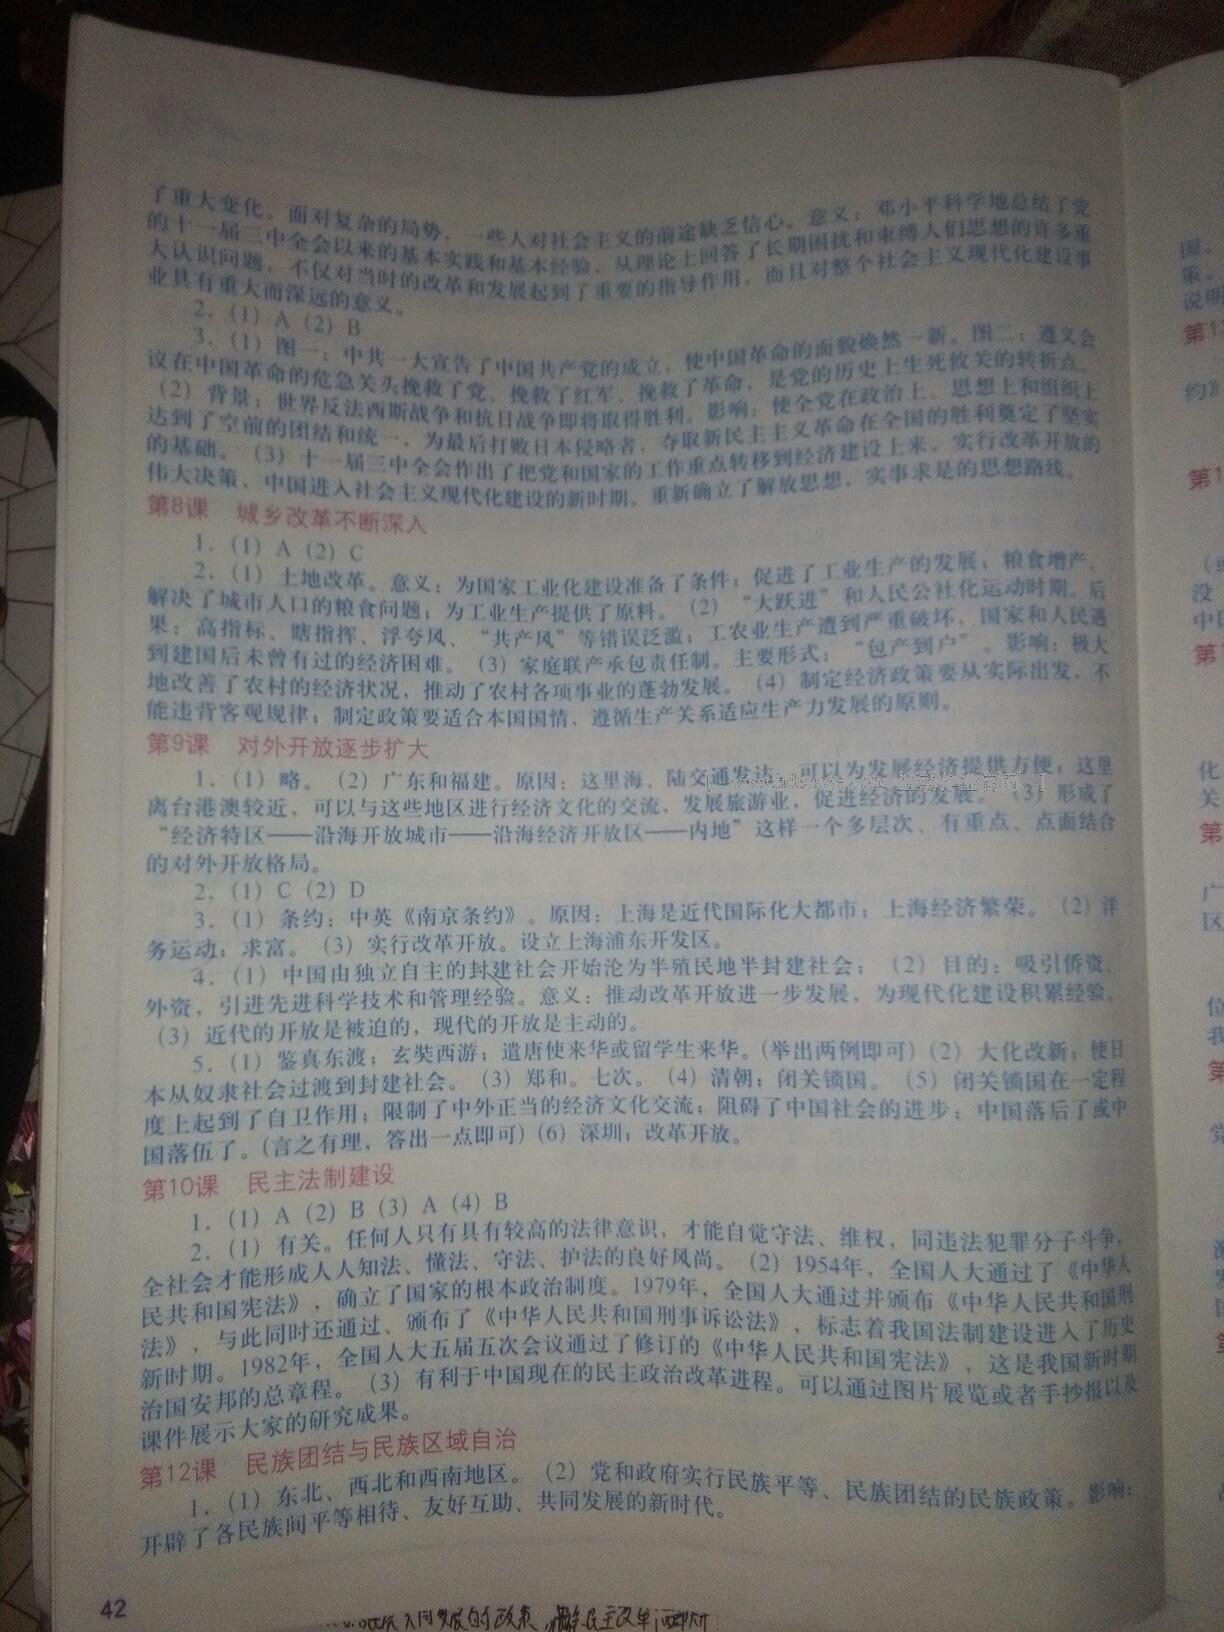 了重大变化。面对复杂的局势，一些人对社会主义的前途缺乏信心。意义：邓小平科学地总结了党
的十一届三中全会以来的基本实践和基本经验，从理论上回答了长期困扰和束缚人们思想的许多重
大认识问题，不仅对当时的改革和发展起到了重要的指导作用，而且对整个社会主义现代化建设事
业具有重大而深远的意义。
2．（1）A（2）B
3．（1）图一：中共一大宣告了中国共产党的成立，使中国革命的面貌焕然一新。图二：遵义会
议在中国革命的危急关头挽救了党、挽救了红军、挽救了革命，是党的历史上生死攸关的转折点。
（2）背景：世界反法西斯战争和抗日战争即将取得胜利。影响：使全党在政治上、思想上和组织上
达到了空前的团结和统一，为最后打败日本侵略者，夺取新民主主义革命在全国的胜利奠定了坚实
的基础。（3）十一届三中全会作出了把党和国家的工作重点转移到经济建设上来，实行改革开放的
伟大决策，中国进入社会主义现代化建设的新时期。重新确立了解放思想，实事求是的思想路线。
第8课 城乡改革不断深入
1．（1）A（2）C
2．（1）土地改革。意义：为国家工业化建设准备了条件；促进了工业生产的发展；粮食增产，
解决了城市人口的粮食问题；为工业生产提供了原料。（2）“大跃进”和人民公社化运动时期。后
果：高指标、瞎指挥、浮夸风、“共产风”等错误泛滥；工农业生产遭到严重破坏，国家和人民遇
到建国后未曾有过的经济困难。（3）家庭联产承包责任制。主要形式：“包产到户”。影响：极大
地改善了农村的经济状况，推动了农村各项事业的蓬勃发展。（4）制定经济政策要从实际出发，不
能违背客观规律；制定政策要适合本国国情，遵循生产关系适应生产力发展的原则。
第9课 对外开放逐步扩大
1．（1）略。（2）广东和福建。原因：这里海、陆交通发达，可以为发展经济提供方便；这里
离台港澳较近，可以与这些地区进行经济文化的交流，发展旅游业，促进经济的发展。（3）形成了
“经济特区——沿海开放城市——沿海经济开放区——内地”这样一个多层次、有重点、点面结合
的对外开放格局。
2．（1）C（2）D
3．（1）条约：中英《南京条约》。原因：上海是近代国际化大都市；上海经济繁荣。（2）洋
务运动；求富。（3）实行改革开放。设立上海浦东开发区。
4．（1）中国由独立自主的封建社会开始沦为半殖民地半封建社会；（2）目的：吸引侨资、
外资，引进先进科学技术和管理经验。意义：推动改革开放进一步发展，为现代化建设积累经验。
（3）近代的开放是被迫的，现代的开放是主动的。
5．（1）鉴真东渡；玄奘西游；遣唐使来华或留学生来华。（举出两例即可）（2）大化改新；使日
本从奴隶社会过渡到封建社会。（3）郑和。七次。（4）清朝；闭关锁国。（5）闭关锁国在一定程
度上起到了自卫作用；限制了中外正当的经济文化交流；阻碍了中国社会的进步；中国落后了或中
国落伍了。（言之有理，答出一点即可）（6）深圳；改革开放。
第10课 民主法制建设
1．（1）A（2）B（3）A（4）B
2．（1）有关。任何人只有具有较高的法律意识，才能自觉守法、维权，同违法犯罪分子斗争，
全社会才能形成人人知法、懂法、守法、护法的良好风尚。（2）1954年，全国人大通过了《中华人
民共和国宪法》，确立了国家的根本政治制度。1979年，全国人大通过并颁布《中华人民共和国刑
法》，与此同时还通过、颁布了《中华人民共和国刑事诉讼法》，标志着我国法制建设进入了历史
新时期。1982年，全国人大五届五次会议通过了修订的《中华人民共和国宪法》，这是我国新时期
治国安邦的总章程。（3）有利于中国现在的民主政治改革进程。可以通过图片展览或者手抄报以及
课件展示大家的研究成果。
第12课 民族团结与民族区域自治
1．（1）东北、西北和西南地区。（2）党和政府实行民族平等、民族团结的民族政策。影响：
开辟了各民族间平等相待、友好互助、共同发展的新时代。
42
国。
策。
说明
第1
约》
第1
没
中国
第
化
关
第
广
区
位
我
第
党